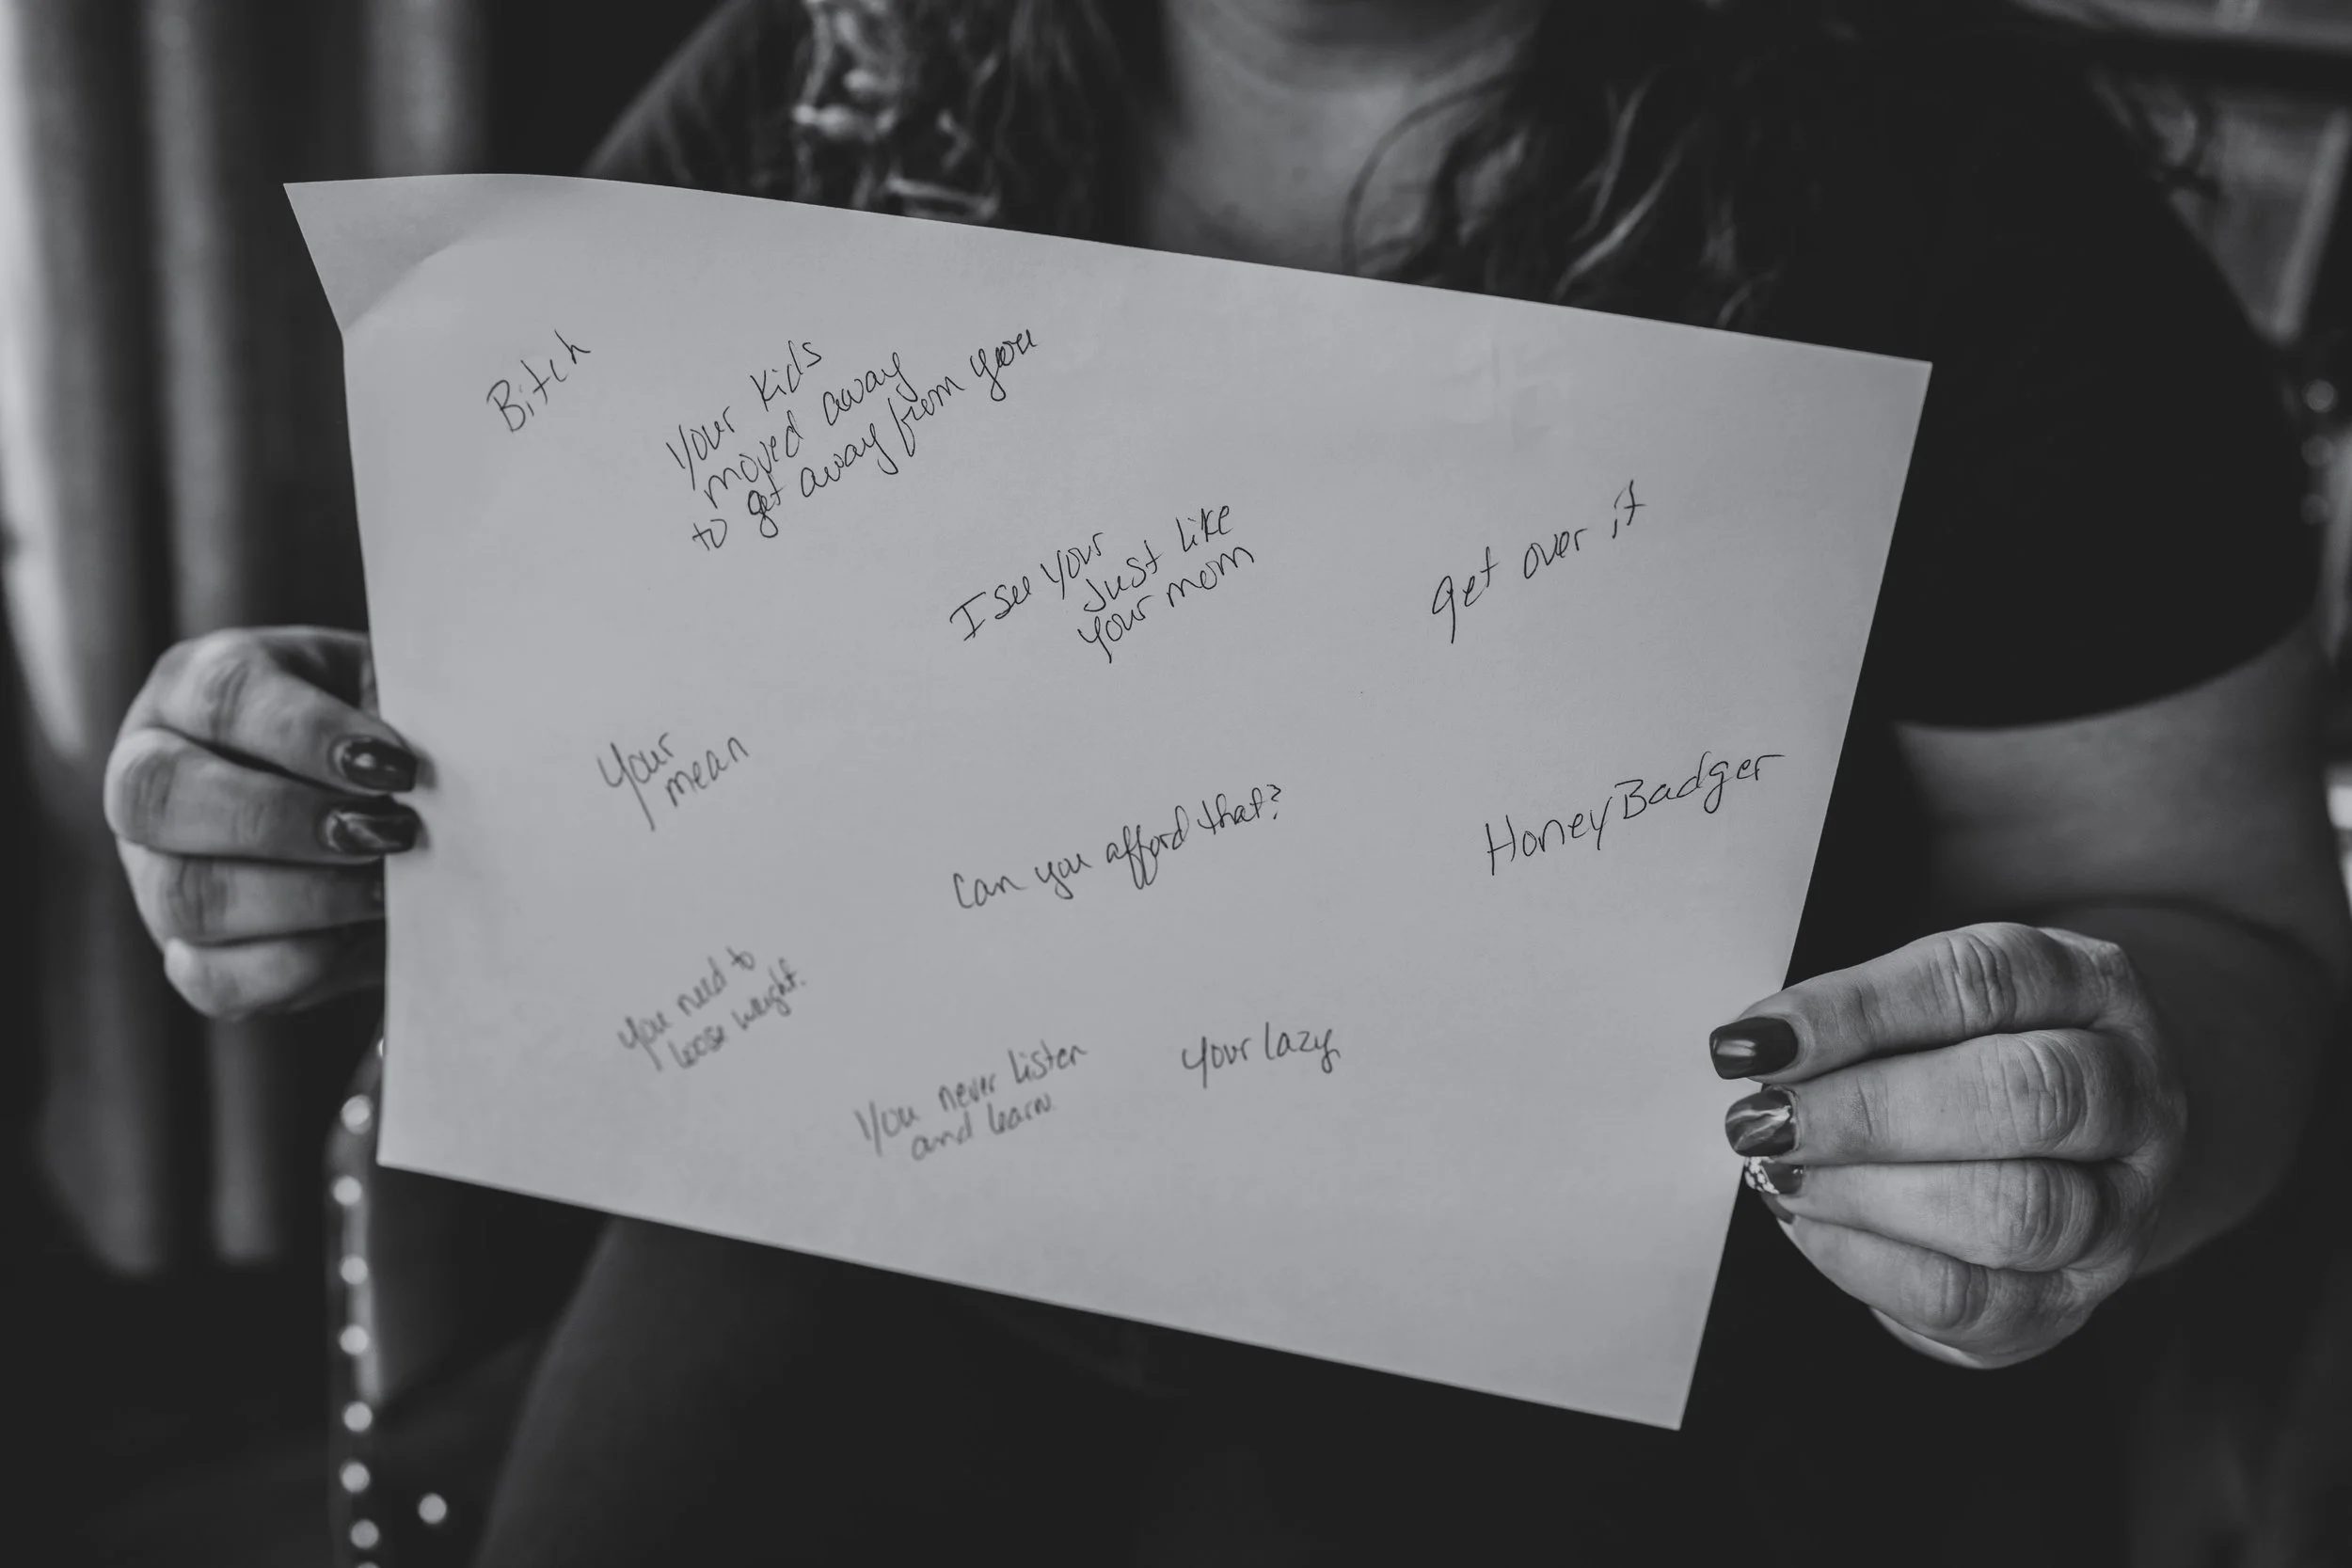 Bitch
Your kids
moved away
to get away from you
I see your
Just like
your mom
get over it
Your
mean
Can you afford that?
Honey Badger
You need to
loose weight.
You never listen
and learn.
Your lazy